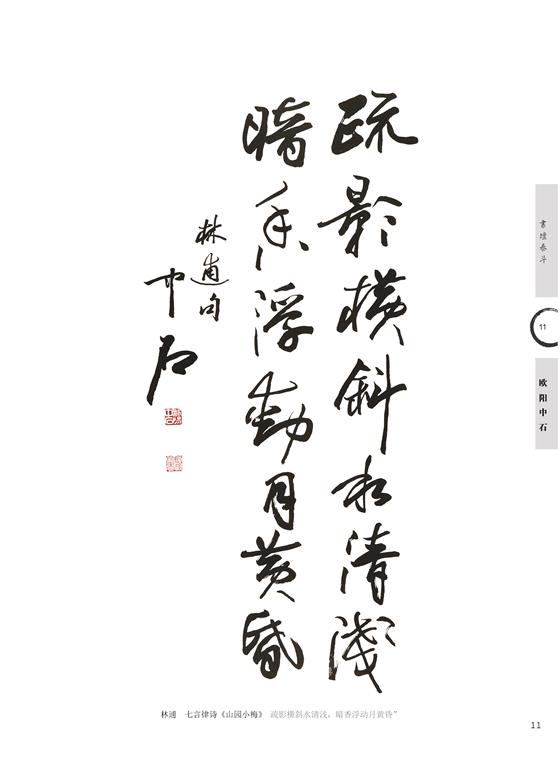 疏影横斜水清淺
暗香浮動月黄昏
林逋句
中石
書壇泰斗
11
欧阳中石
林逋 七言律诗《山园小梅》 疏影横斜水清浅，暗香浮动月黄昏”
11